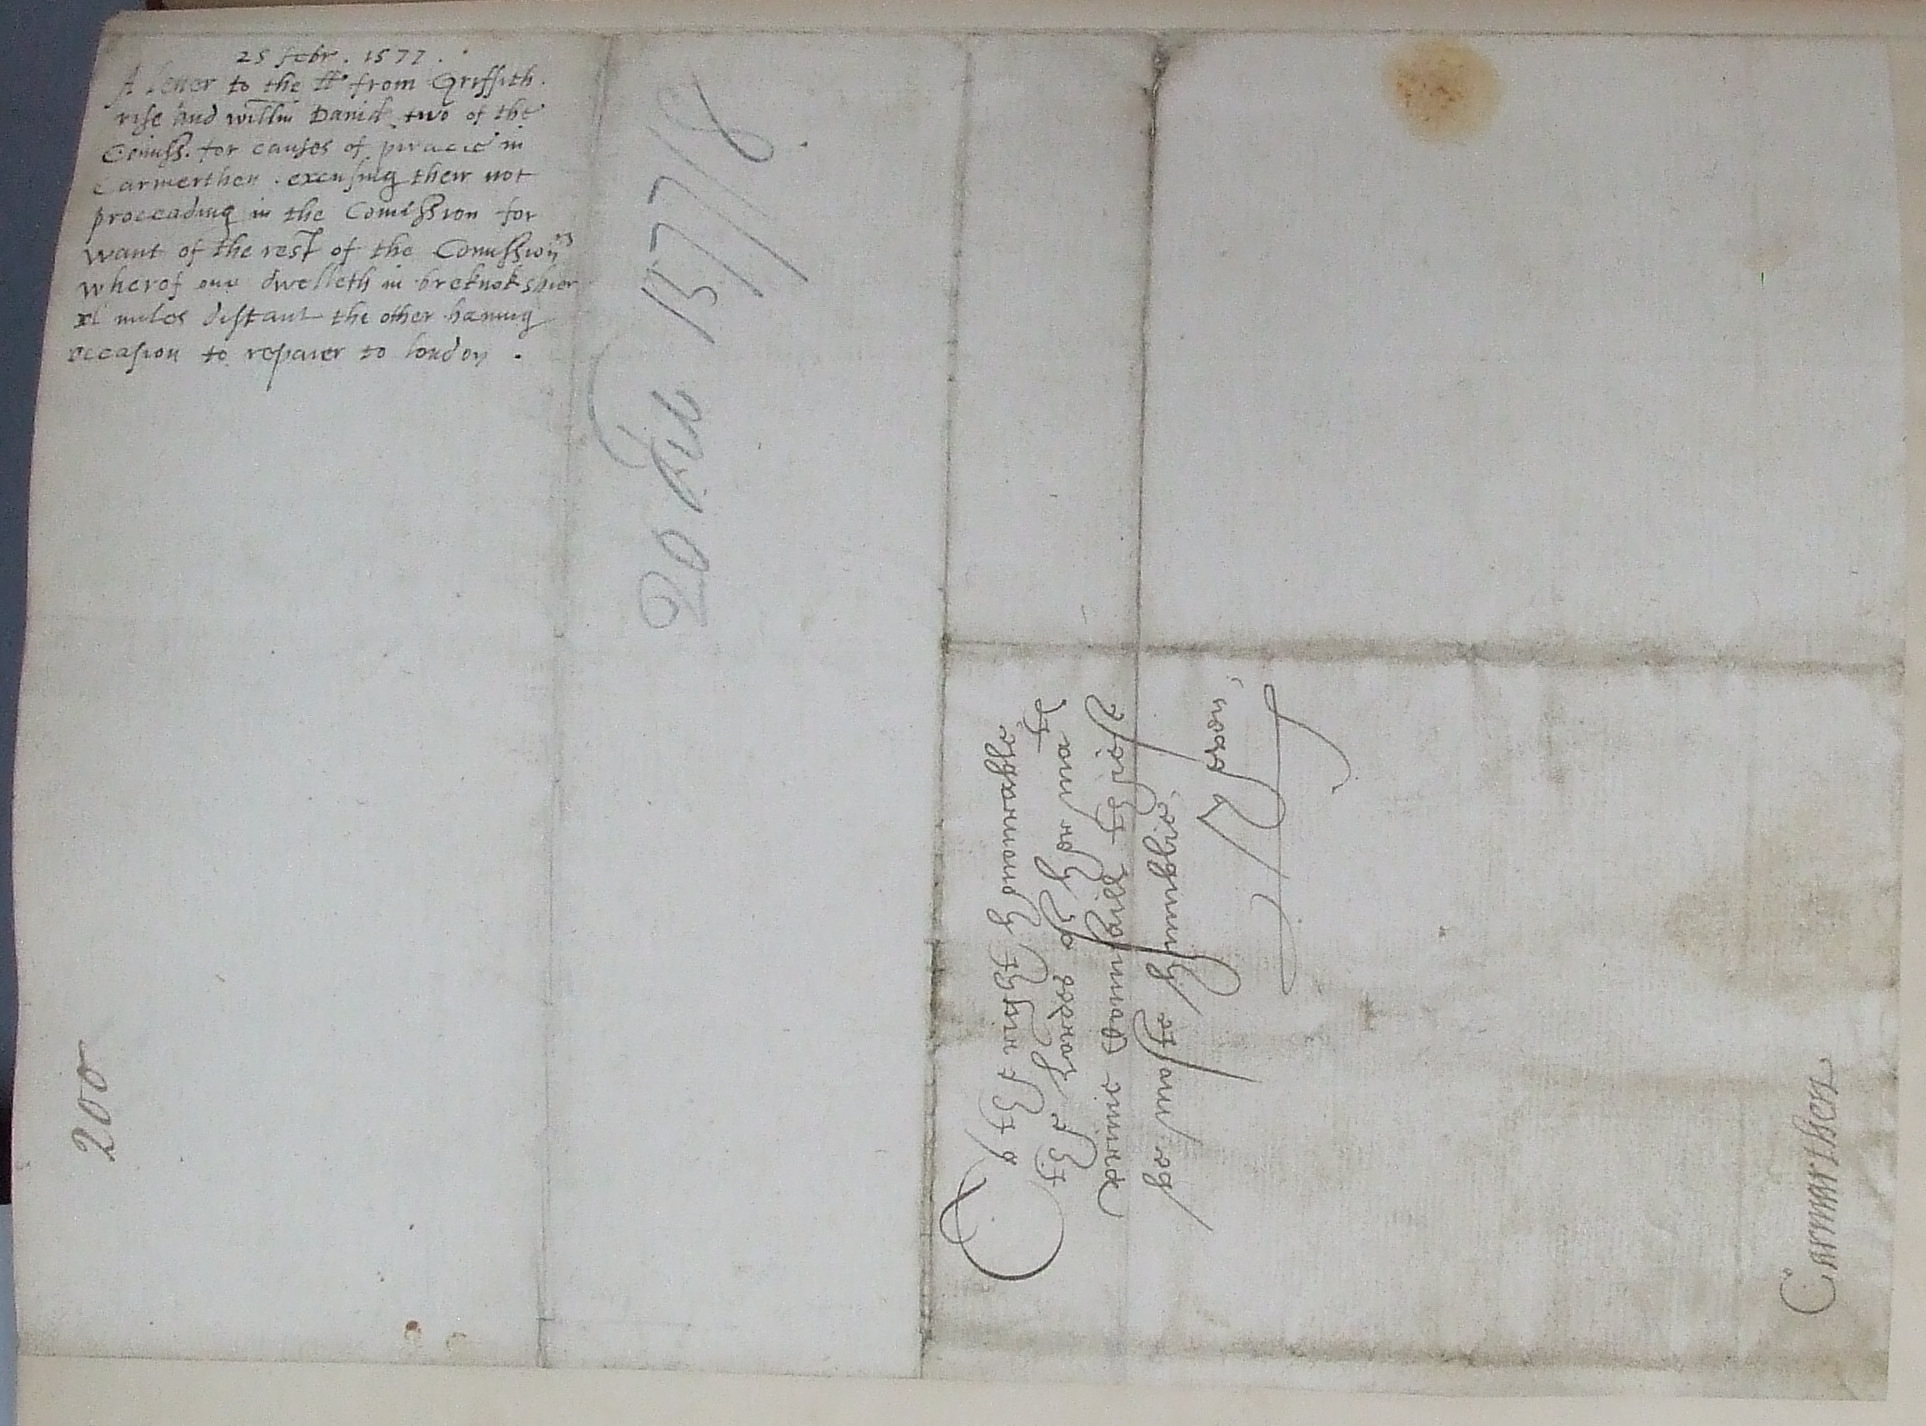 25 febr. 1577.
A letter to the ll from Griffith
rise and willm David two of the
Comiss. for causes of piracie in
Carmerthen. excusing their not
proceading in the Comission for
want of the rest of the Comission rs
wherof one dwelleth in breknokshier
xl miles distant the other having
occasion to repaier to london.
20 Feb 1577/8
200
To the right honorable
the lordes of her ma
privie Counsaill
be this
Carmarthen